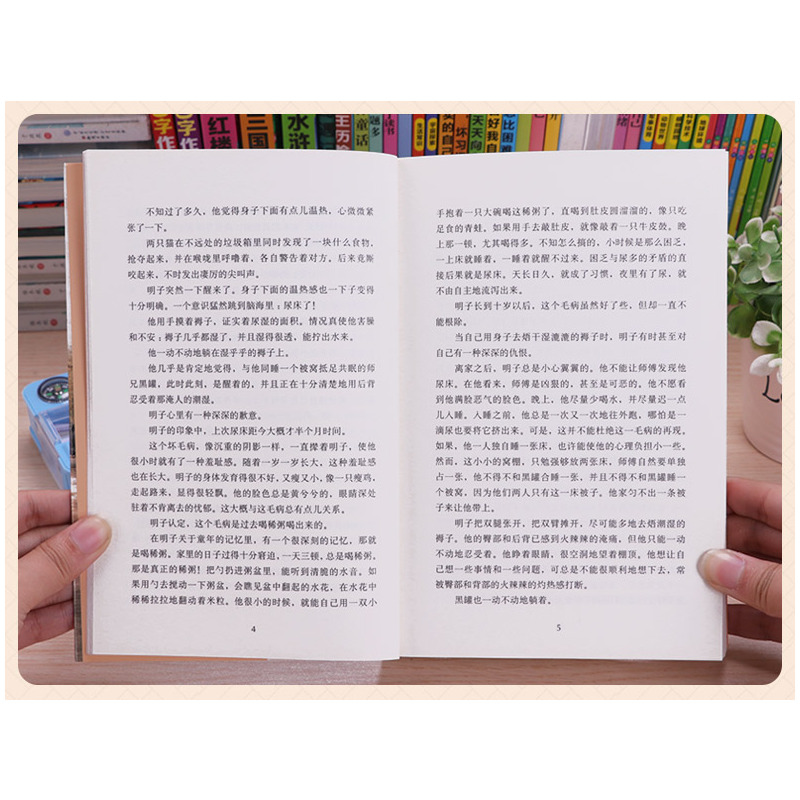 红楼
三国
水浒
童话
不知过了多久，他觉得身子下面有点儿温热，心微微紧
张了一下。
两只猫在不远处的垃圾箱里同时发现了一块什么食物，
抢夺起来，并在喉咙里呼噜着，各自警告着对方。后来竟厮
咬起来，不时发出凄厉的尖叫声。
明子突然一下醒来了。身子下面的温热感也一下子变得
十分明确。一个意识猛然跳到脑海里：尿床了！
他用手摸着褥子，证实着尿湿的面积。情况真使他害臊
和不安：褥子几乎都湿了，并且湿得很透，能拧出水来。
他一动不动地躺在湿乎乎的褥子上。
他几乎是肯定地觉得，与他同睡一个被窝抵足共眠的师
兄黑罐，此时此刻，是醒着的，并且正在十分清楚地用后背
忍受着那淹人的潮湿。
明子心里有一种深深的歉意。
明子的印象中，上次尿床距今大概才半个月时间。
这个坏毛病，像沉重的阴影一样，一直撵着明子，使他
很小时就有了一种羞耻感。随着一岁一岁长大，这种羞耻感
也在长大。明子的身体发育得很不好，又瘦又小，像一只瘦鸡，
走起路来，显得很轻飘。他的脸色总是黄兮兮的，眼睛深处
驻着不肯离去的忧郁。这大概与这毛病总有点儿关系。
明子认定，这个毛病是过去喝稀粥喝出来的。
在明子关于童年的记忆里，有一个很深刻的记忆，那就
是喝稀粥。家里的日子过得十分窘迫，一天三顿，总是稀粥。
那是真正的稀粥！把勺扔进粥盆里，能听到清脆的水音。如
果用勺去搅动一下粥盆，会瞧见盆中翻起的水花，在水花中
稀稀拉拉地翻动着米粒。他很小的时候，就能自己用一双小
4
手抱着一只大碗喝这稀粥了，直喝到肚皮圆溜溜的，像只吃
足食的青蛙。如果用手去敲肚皮，就像敲着一只牛皮鼓。晚
上那一顿，尤其喝得多。不知怎么搞的，小时候是那么困乏，
一上床就睡着，一睡着就醒不过来。困乏与尿多的矛盾的直
接后果就是尿床。天长日久，就成了习惯，夜里有了尿，就
不由自主地流泻出来。
明子长到十岁以后，这个毛病虽然好了些，但却一直不
能根除。
当自己用身子去焐干湿漉漉的褥子时，明子有时甚至对
自己有一种深深的仇恨。
离家之后，明子总是小心翼翼的。他不能让师傅发现他
尿床。在他看来，师傅是凶狠的，甚至是可恶的。他不愿看
到他满脸恶气的脸色。晚上，他尽量少喝水，并尽量迟一点
儿入睡。入睡之前，他总是一次又一次地往外跑，哪怕是一
滴尿也要将它挤出来。可是，这并不能杜绝这一毛病的再现。
如果，他一人独自睡一张床，也许能使他的心理负担小一些。
然而，这小小的窝棚，只勉强够放两张床，师傅自然要单独
占一张，他不得不和黑罐合睡一张，并且不得不和黑罐睡一
个被窝，因为他们两人只有这一床被子。他家匀不出一条被
子来让他带上。
明子把双腿张开，把双臂摊开，尽可能多地去焐潮湿的
褥子。他的臀部和后背已感到火辣辣的淹痛。但他只能一动
不动地忍受着。他睁着眼睛，很空洞地望着棚顶。他想让自
己想一些事情和一些问题，可总是不能很顺利地想下去，常
被臀部和背部的火辣辣的灼热感打断。
黑罐也一动不动地躺着。
5